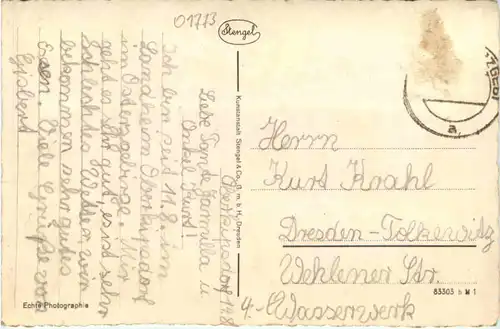 01773
Stengel
Oberkipsdorf 14.8.
Liebe Tante Camilla u
Onkel Kurt!
Ich bin seit 11.8. im
Landheim Oberkipsdorf
im Osterzgebirge. Mir
geht es sehr gut, es ist sehr
schlechtes Wetter, wir
bekommen sehr gutes
Essen. Viele Grüße von
Gisbert
Kunstanstalt Stengel & Co., G. m. b. H., Dresden
Herrn
Kurt Krahl
Dresden-Tolkewitz
Wehlener Str.
4-Wasserwerk
Echte Photographie
83303 h M 1
a